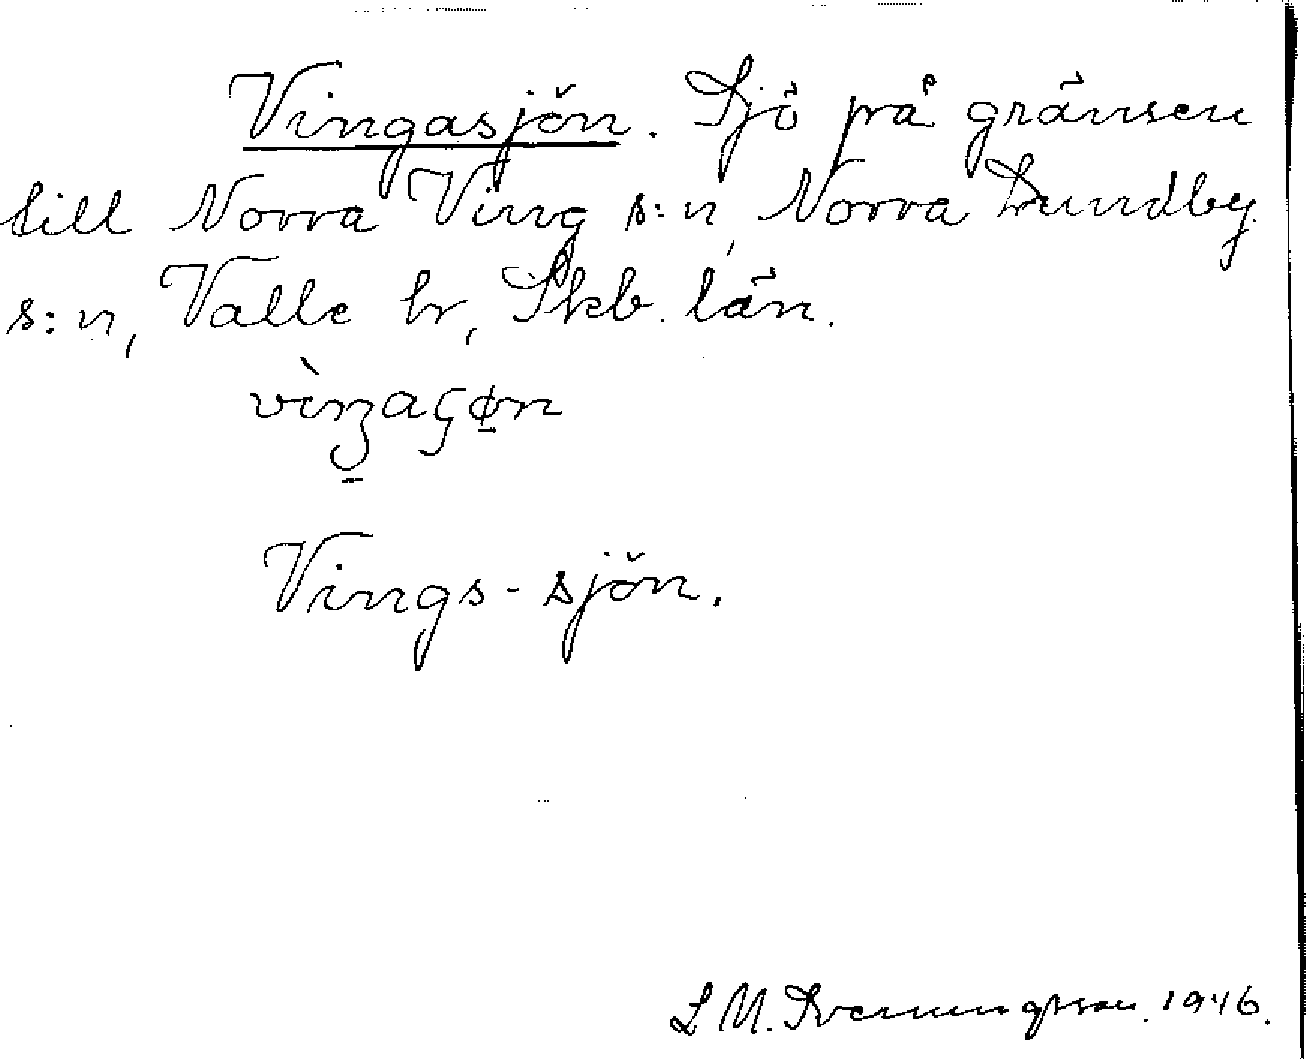 Vingasjön. Sjö på gränsen
till Norra Ving s:n, Norra Lundby
s:n, Valle hr, Skb. län.
Vings-sjön.
L M. Svenungsson. 1946.